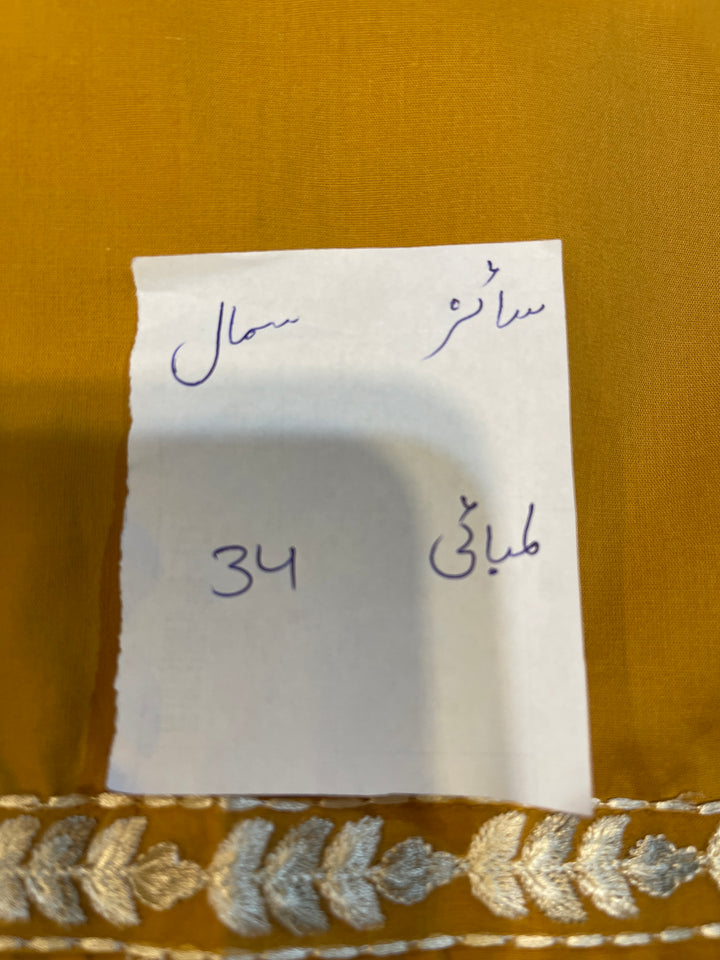 سائز سمال
لمبائی 34